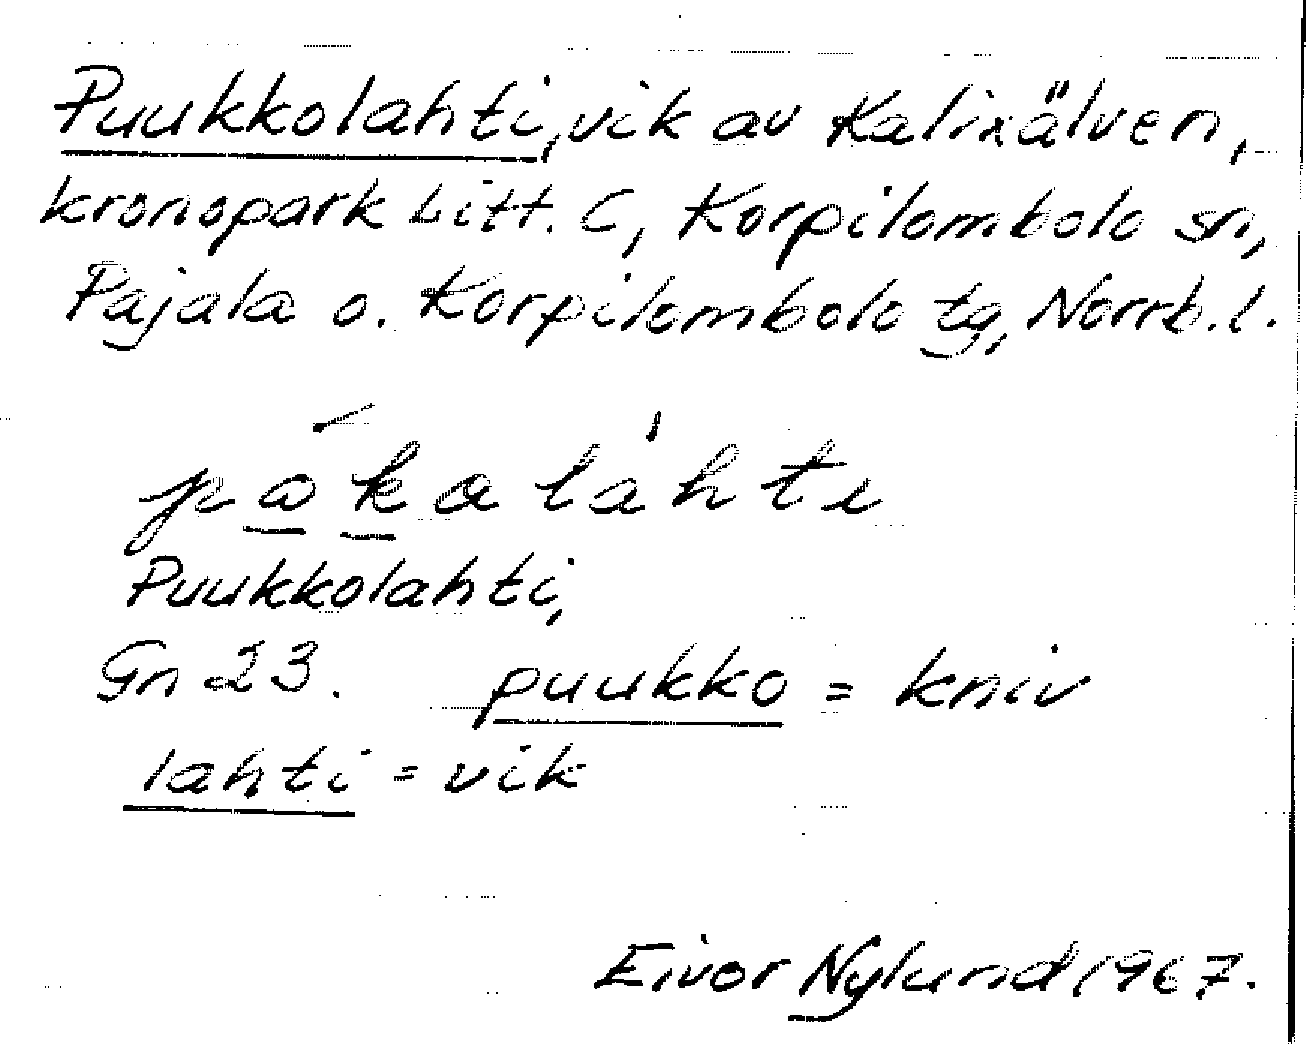 Puukkolahti, vik av Kalixälven,
kronopark Litt. C, Korpilombolo sn,
Pajala o. Korpilombolo tg, Norrb. l.
Puukkolahti,
Gn 23. puukko = kniv
lahti = vik
Eivor Nylund 1967.